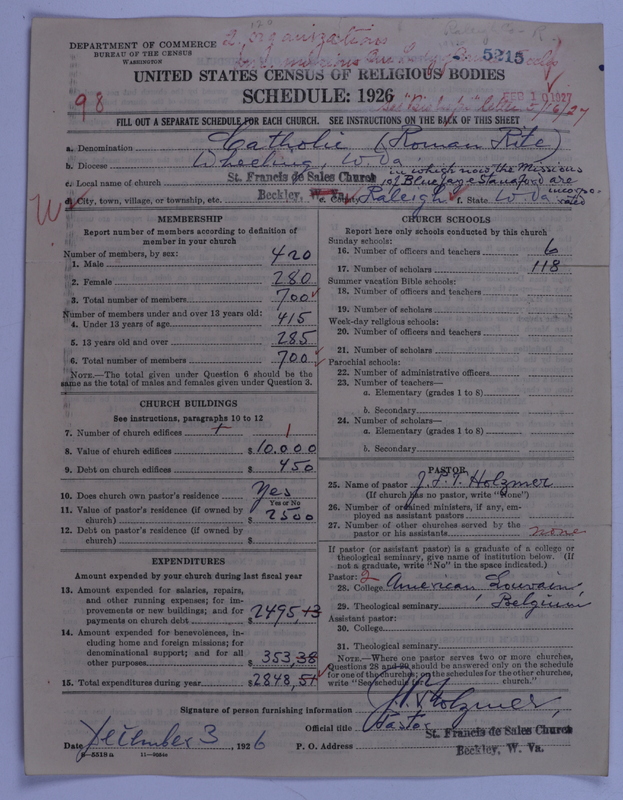 DEPARTMENT OF COMMERCE
BUREAU OF THE CENSUS
WASHINGTON
2 organizations
5215
UNITED STATES CENSUS OF RELIGIOUS BODIES
SCHEDULE: 1926
FEB 10 1927
98
letter 5/6/27
FILL OUT A SEPARATE SCHEDULE FOR EACH CHURCH. SEE INSTRUCTIONS ON THE BACK OF THIS SHEET
a. Denomination Catholic (Roman Rite)
b. Diocese Wheeling, W. Va.
c. Local name of church St. Francis de Sales Church in which now the Missions of Blue Jay & Stanaford are incorporated
d. City, town, village, or township, etc. Beckley, W. Va. e. County Raleigh f. State W. Va
MEMBERSHIP
Report number of members according to definition of member in your church
Number of members, by sex:
1. Male 420
2. Female 280
3. Total number of members 700
Number of members under and over 13 years old:
4. Under 13 years of age 415
5. 13 years old and over 285
6. Total number of members 700
NOTE.—The total given under Question 6 should be the
same as the total of males and females given under Question 3.
CHURCH BUILDINGS
See instructions, paragraphs 10 to 12
7. Number of church edifices 1
8. Value of church edifices $ 10.000
9. Debt on church edifices $ 450
10. Does church own pastor's residence Yes
Yes or No
11. Value of pastor's residence (if owned by
church) $ 2500
12. Debt on pastor's residence (if owned by
church) $
EXPENDITURES
Amount expended by your church during last fiscal year
13. Amount expended for salaries, repairs,
and other running expenses; for im-
provements or new buildings; and for
payments on church debt $ 2495,13
14. Amount expended for benevolences, in-
cluding home and foreign missions; for
denominational support; and for all
other purposes $ 353,38
15. Total expenditures during year $ 2848,51
CHURCH SCHOOLS
Report here only schools conducted by this church
Sunday schools:
16. Number of officers and teachers 6
17. Number of scholars 118
Summer vacation Bible schools:
18. Number of officers and teachers
19. Number of scholars
Week-day religious schools:
20. Number of officers and teachers
21. Number of scholars
Parochial schools:
22. Number of administrative officers
23. Number of teachers—
a. Elementary (grades 1 to 8)
b. Secondary
24. Number of scholars—
a. Elementary (grades 1 to 8)
b. Secondary
PASTOR
25. Name of pastor J. F. T. Holzmer
(If church has no pastor, write "None")
26. Number of ordained ministers, if any, em-
ployed as assistant pastors
27. Number of other churches served by the
pastor or his assistants none
If pastor (or assistant pastor) is a graduate of a college or
theological seminary, give name of institution below. (If
not a graduate, write "No" in the space indicated.)
Pastor: 2
28. College American Louvain,
29. Theological seminary Belgium
Assistant pastor:
30. College
31. Theological seminary
NOTE.—Where one pastor serves two or more churches,
Questions 28 and 29 should be answered only on the schedule
for one of the churches; on the schedules for the other churches,
write "See schedule for church."
Signature of person furnishing information Holzmer,
Official title Pastor
Date December 3, 1926 P. O. Address St. Francis de Sales Church
Beckley, W. Va.